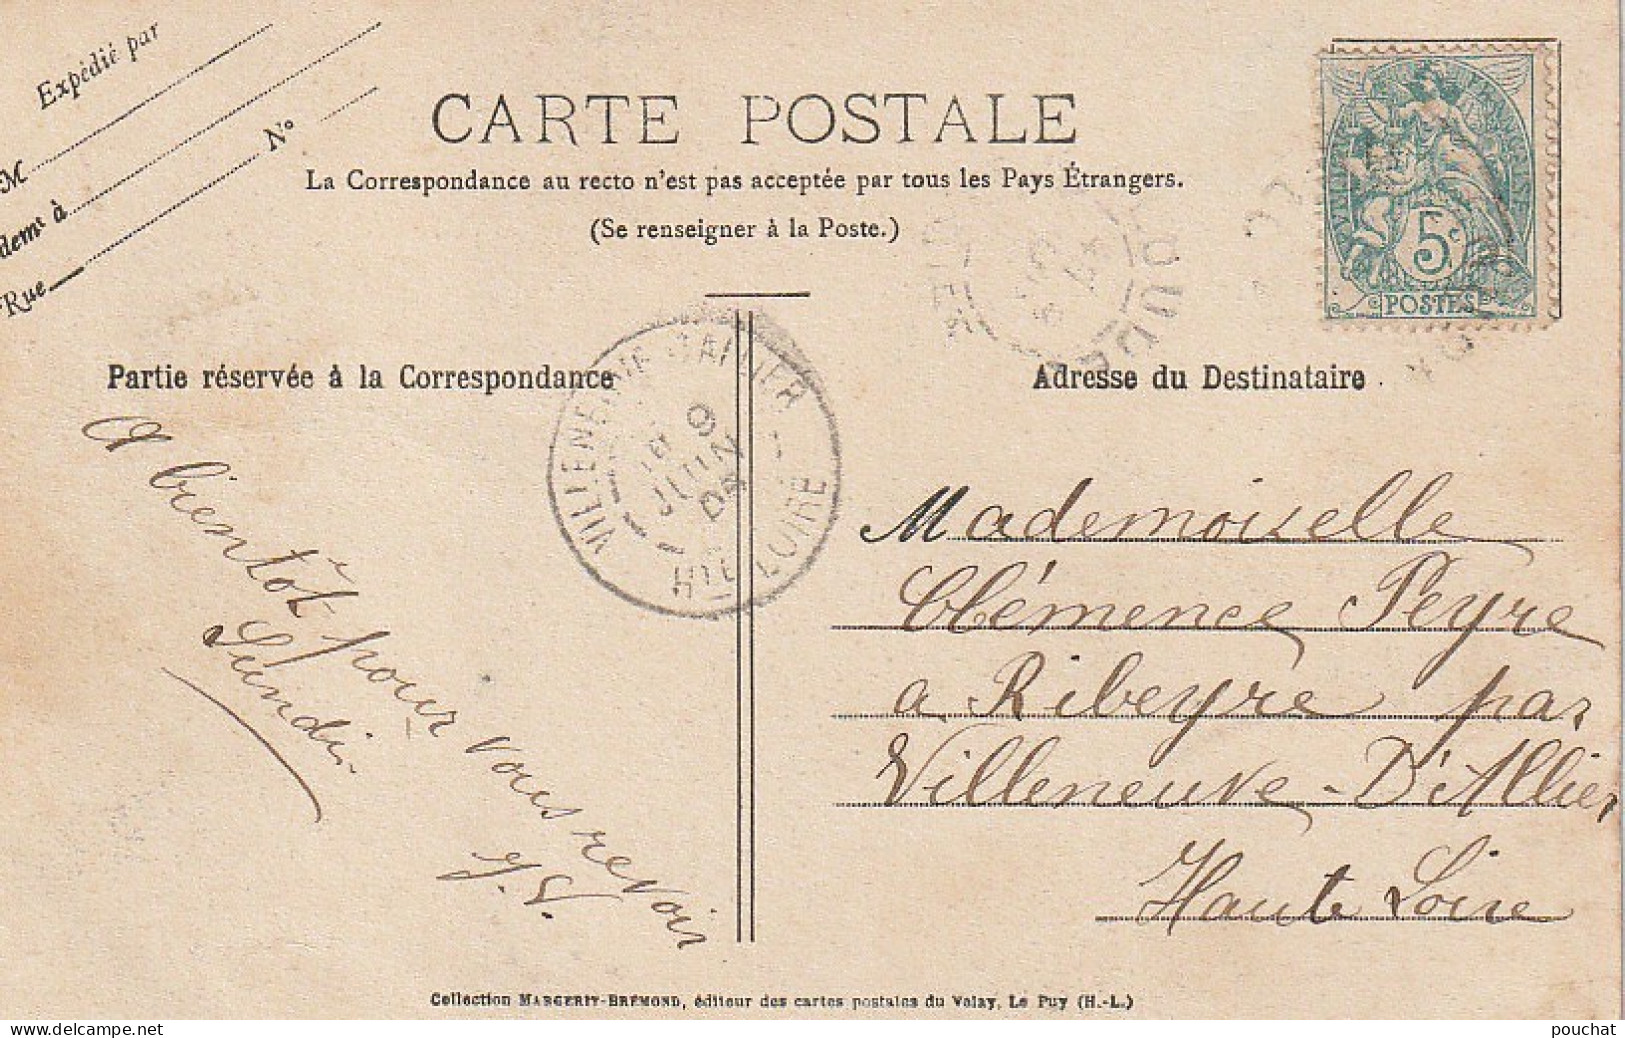 Expédié par
M
dem^t à
Rue N°
CARTE POSTALE
La Correspondance au recto n'est pas acceptée par tous les Pays Étrangers.
(Se renseigner à la Poste.)
RÉPUBLIQUE FRANÇAISE
5c
POSTES
Partie réservée à la Correspondance
A bientôt pour vous revoir
Lundi
J. V.
VILLENEUVE D'ALLIER
9
JUIN
HTE LOIRE
Adresse du Destinataire
Mademoiselle
Clémence Peyre
a Ribeyre par
Villeneuve-D'Allier
Haute Loire
Collection MARGERIT-BRÉMOND, éditeur des cartes postales du Velay, Le Puy (H.-L.)
pouchat